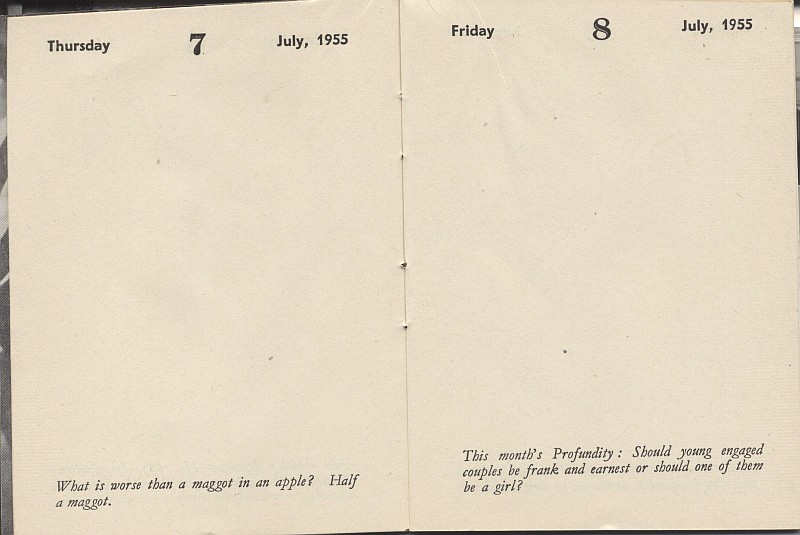 Thursday 7 July, 1955
What is worse than a maggot in an apple? Half
a maggot.
Friday 8 July, 1955
This month's Profundity : Should young engaged
couples be frank and earnest or should one of them
be a girl?